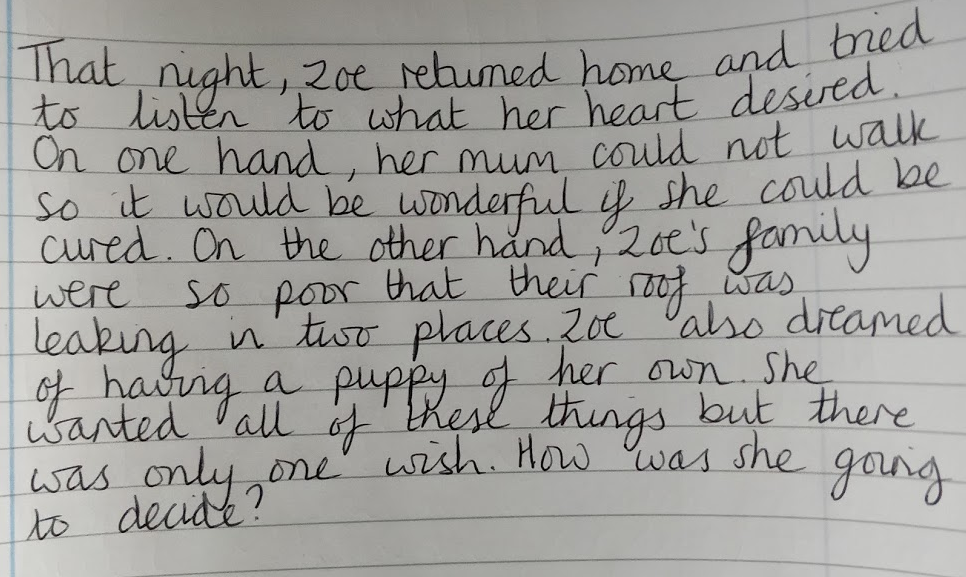 That night, Zoe returned home and tried
to listen to what her heart desired.
On one hand, her mum could not walk
so it would be wonderful if she could be
cured. On the other hand, Zoe's family
were so poor that their roof was
leaking in two places. Zoe also dreamed
of having a puppy of her own. She
wanted all of these things but there
was only one wish. How was she going
to decide?